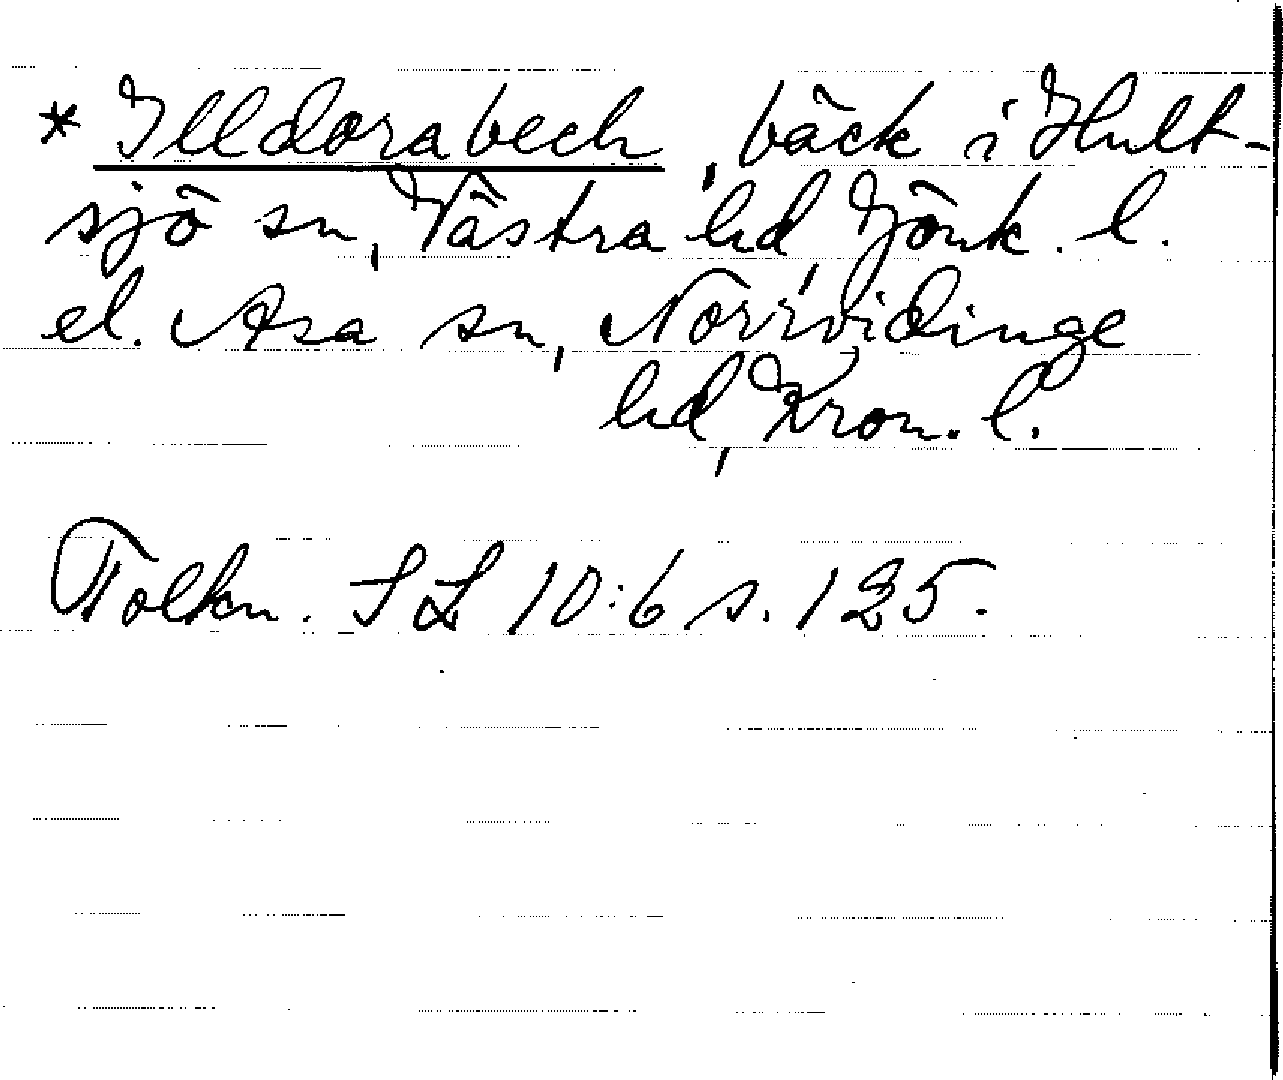 * Illdorabech, bäck i Hult-
sjö sn, Västra hd, Jönk. l.
el. Asa sn, Norrvidinge
hd, Kron. l.
Tolkn. SL 10:6 s. 125.